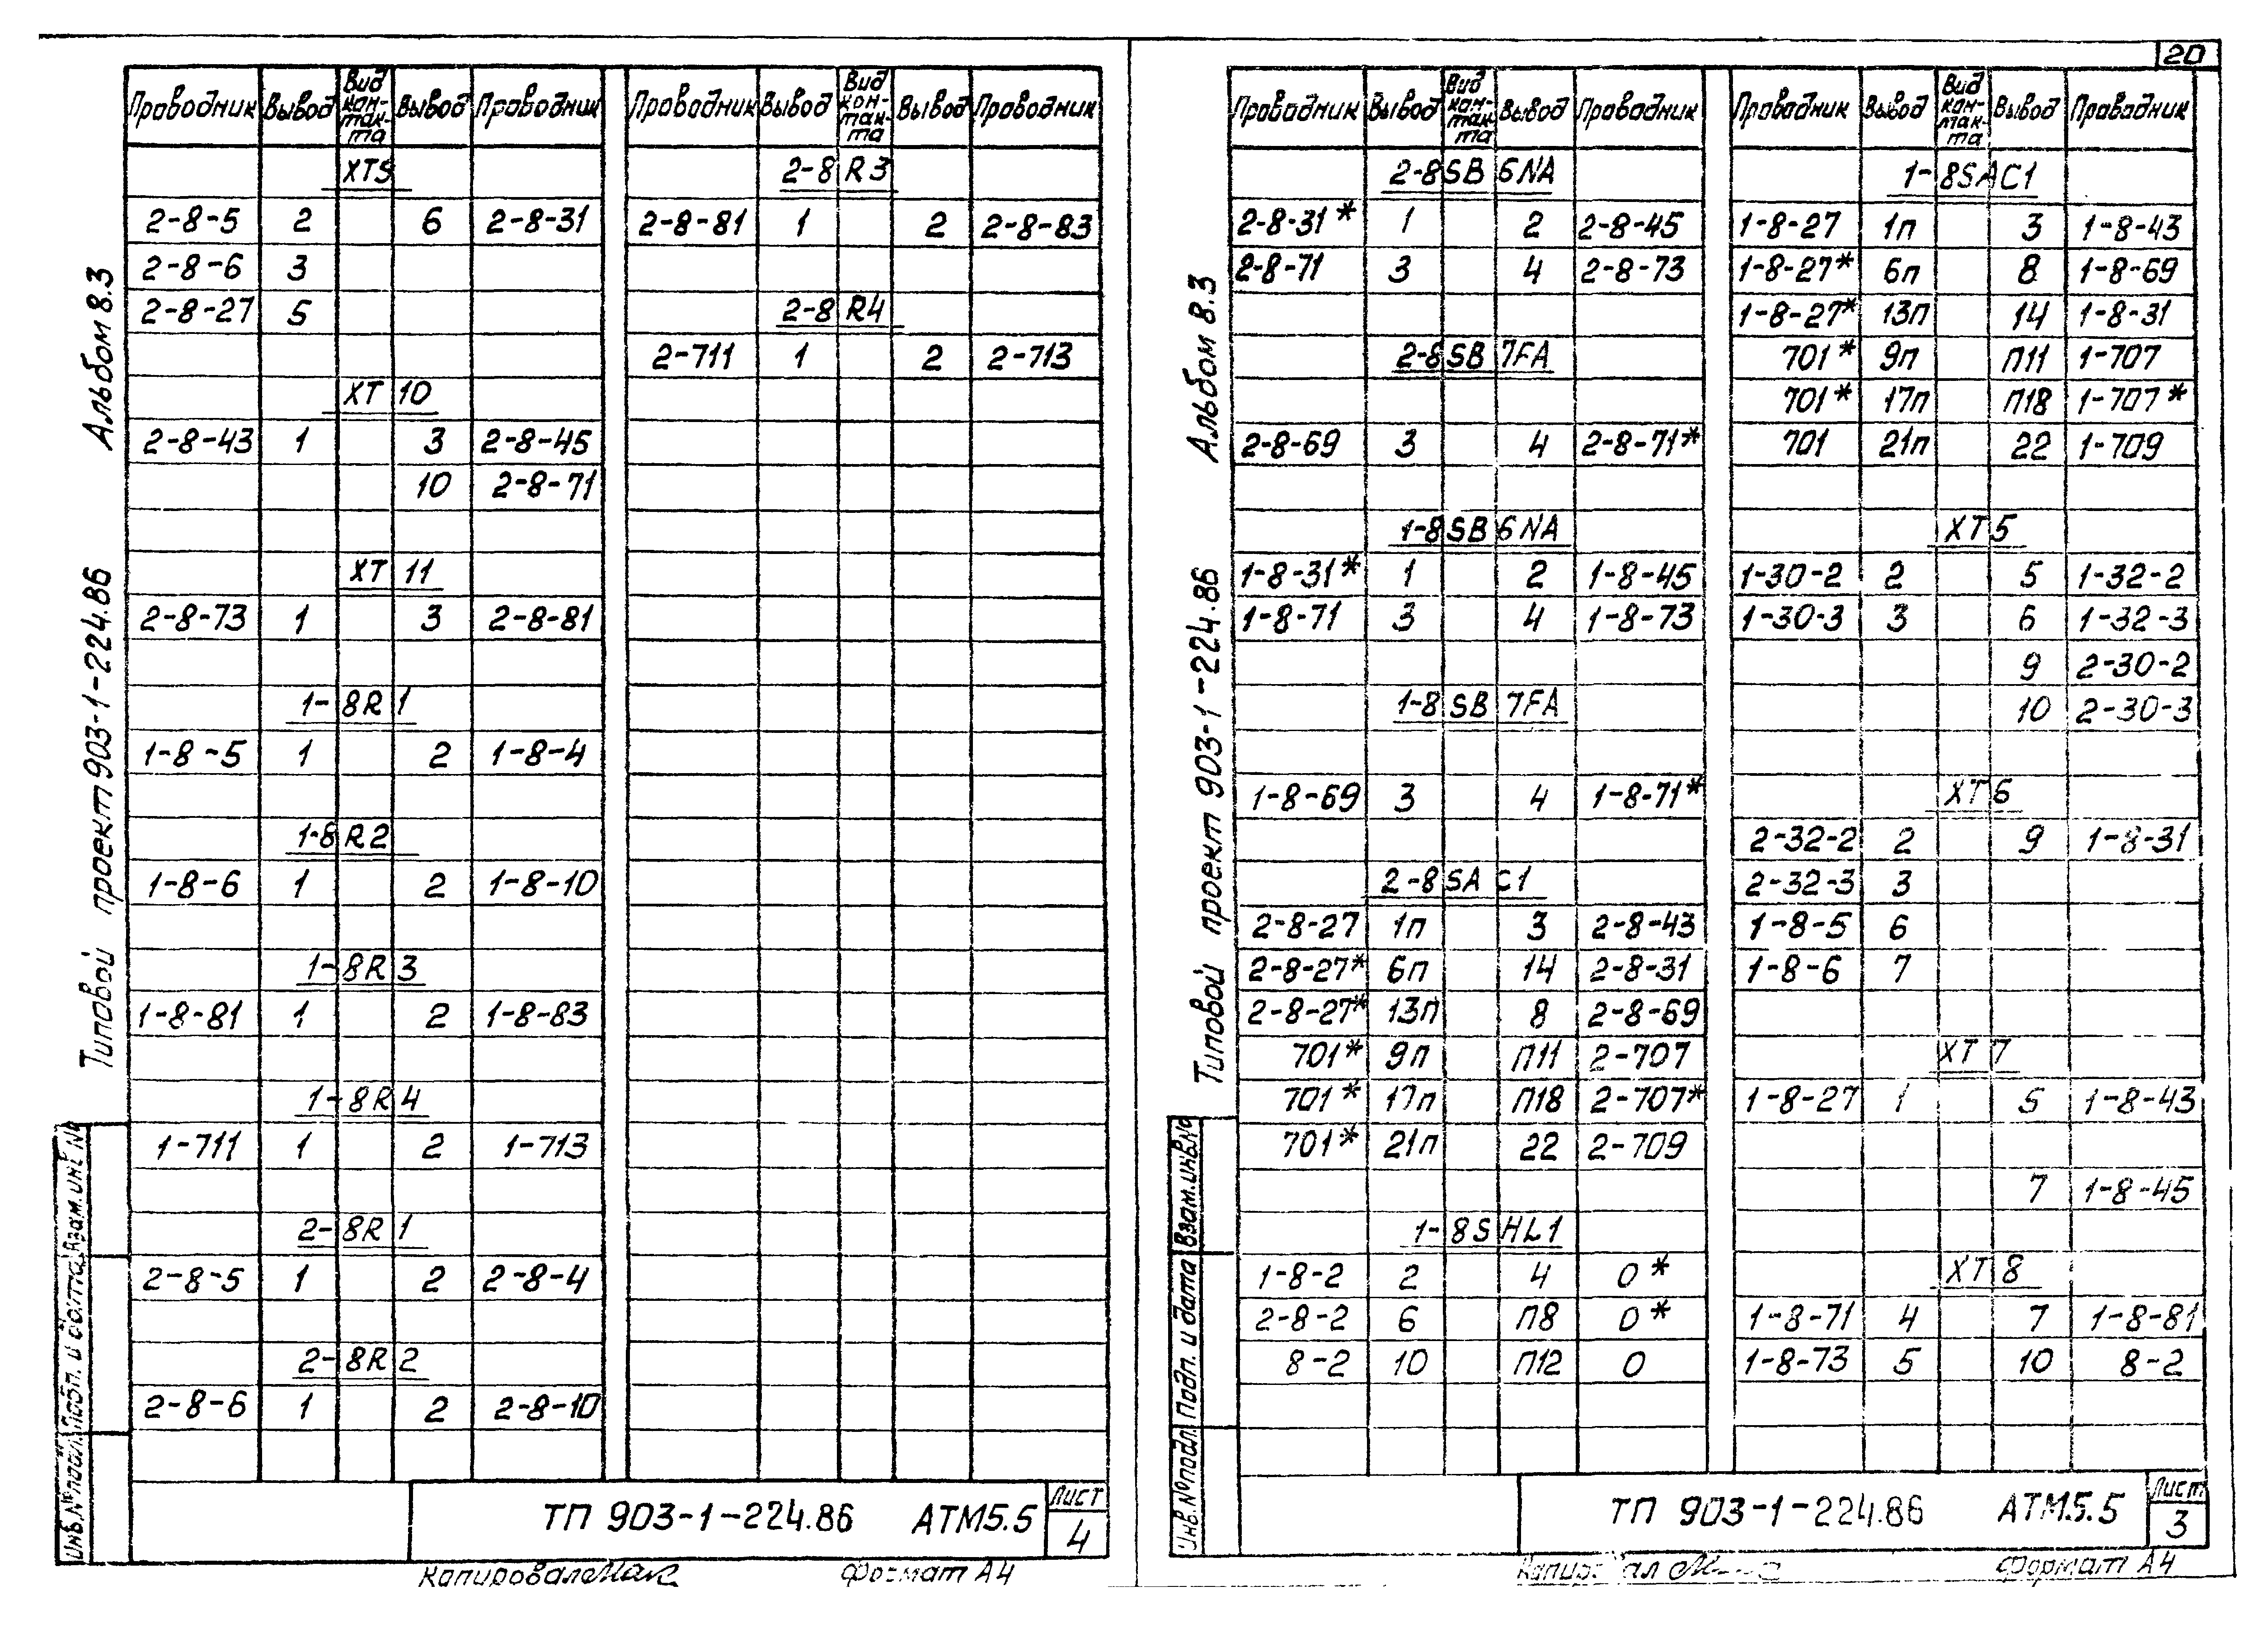 20
Альбом 8.3
Типовой проект 903-1-224.86
Проводник Вывод Вид кон-так-та Вывод Проводник Проводник Вывод Вид кон-так-та Вывод Проводник
XT5 2-8R3
2-8-5 2 6 2-8-31 2-8-81 1 2 2-8-83
2-8-6 3
2-8-27 5 2-8R4
2-711 1 2 2-713
XT10
2-8-43 1 3 2-8-45
10 2-8-71
XT11
2-8-73 1 3 2-8-81
1-8R1
1-8-5 1 2 1-8-4
1-8R2
1-8-6 1 2 1-8-10
1-8R3
1-8-81 1 2 1-8-83
1-8R4
1-711 1 2 1-713
2-8R1
2-8-5 1 2 2-8-4
2-8R2
2-8-6 1 2 2-8-10
Инв.№подл. Подп. и дата Взам.инв№
ТП 903-1-224.86 АТМ5.5 Лист 4
Копировал Формат А4
Альбом 8.3
Типовой проект 903-1-224.86
Проводник Вывод Вид кон-так-та Вывод Проводник Проводник Вывод Вид кон-так-та Вывод Проводник
2-8SB6NA 1-8SAC1
2-8-31* 1 2 2-8-45 1-8-27 1п 3 1-8-43
2-8-71 3 4 2-8-73 1-8-27* 6п 8 1-8-69
1-8-27* 13п 14 1-8-31
2-8SB7FA 701* 9п П11 1-707
701* 17п П18 1-707*
2-8-69 3 4 2-8-71* 701 21п 22 1-709
1-8SB6NA XT5
1-8-31* 1 2 1-8-45 1-30-2 2 5 1-32-2
1-8-71 3 4 1-8-73 1-30-3 3 6 1-32-3
9 2-30-2
1-8SB7FA 10 2-30-3
1-8-69 3 4 1-8-71* XT6
2-32-2 2 9 1-8-31
2-8SAC1 2-32-3 3
2-8-27 1п 3 2-8-43 1-8-5 6
2-8-27* 6п 14 2-8-31 1-8-6 7
2-8-27* 13п 8 2-8-69
701* 9п П11 2-707 XT7
701* 17п П18 2-707* 1-8-27 1 5 1-8-43
701* 21п 22 2-709
7 1-8-45
1-8SHL1
1-8-2 2 4 0* XT8
2-8-2 6 П8 0* 1-8-71 4 7 1-8-81
8-2 10 П12 0 1-8-73 5 10 8-2
Инв.№подл. Подп. и дата Взам.инв.№
ТП 903-1-224.86 АТМ5.5 Лист 3
Формат А4